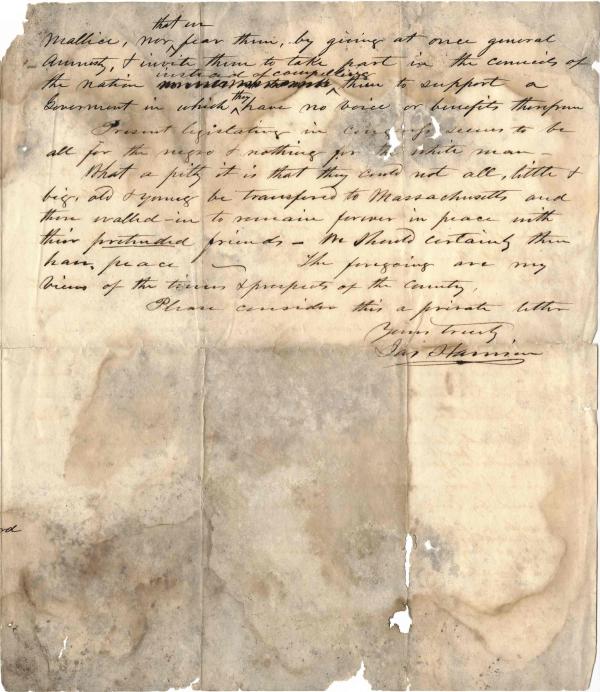 that we
Mallice, nor fear them, by giving at once general
Amnesty, & invite them to take part in the councils of
instead of compelling
the nation them to support a
Goverment in which they have no voice or benefits therefrom
Present legislating in Congress seems to be
all for the negro & nothing for the white man -
What a pitty it is that they could not all, little &
big, old & young be transfered to Massachusetts and
there walled-in to remain forever in peace with
their pretended friends - We should certainly then
have peace - The foregoing are my
views of the times & prospects of the country,
Please consider this a private letter
Yours truly
Jas Harrison
rd